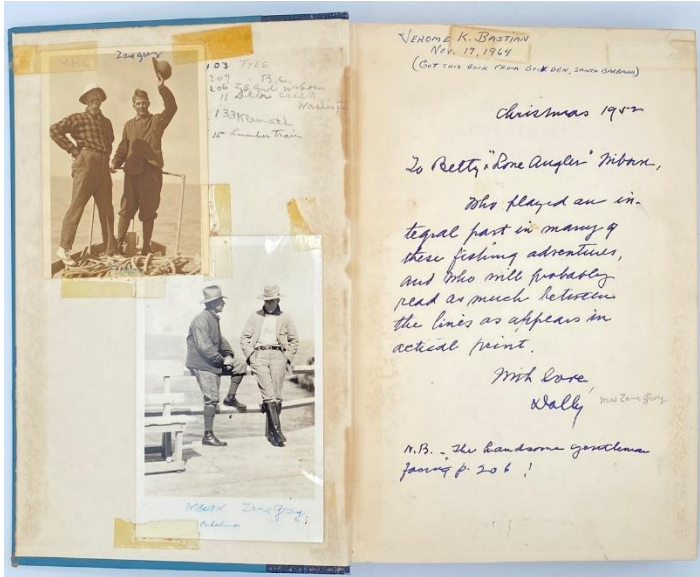 Zane Grey
103 TYEE
207 " B.C.
206 ZG and Wiborn
11 Deer Creek
Washington
133 Klamath
15 Lumber train
WIBORN Zane Grey
Catalina
JEROME K. BASTIAN
NOV. 17, 1964
(GOT THIS BOOK FROM BOOK DEN, SANTA BARBARA)
Christmas 1952
To Betty & "Lone Angler" Wiborn,
Who played an in-
tegral part in many of
these fishing adventures,
and who will probably
read as much between
the lines as appears in
actual print.
With love,
Dolly
Mrs Zane Grey
N.B. - The handsome gentleman
facing p. 206!